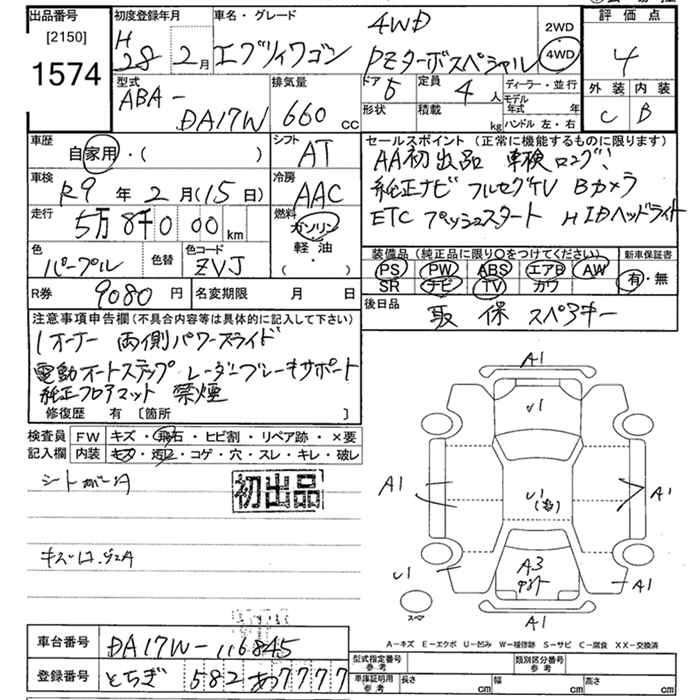 出品番号
[2150]
1574
初度登録年月
H
28 2月
車名・グレード
4WD
エブリィワゴン PZターボスペシャル
2WD
4WD
評価点
4
外装 内装
C B
型式
ABA-
DA17W
排気量
660 cc
ドア 5
定員 4人
形状
積載 kg
ディーラー・並行
モデル年式 年
ハンドル 左・右
車歴
自家用・( )
シフト
AT
車検
R9年2月(15日)
冷房
AAC
走行
5万8千000km
燃料
ガソリン
軽油
( ・ )
色
パープル
色替
色コード
ZVJ
セールスポイント(正常に機能するものに限ります)
AA初出品 車検ロング!
純正ナビ フルセグTV Bカメラ
ETC プッシュスタート HIDヘッドライト
装備品(純正品に限り○をつけてください)
PS PW ABS エアB AW
SR ナビ TV カワ
新車保証書
有・無
R券 9080円
名変期限 月 日
後日品
取 保 スペアキー
注意事項申告欄(不具合内容等は具体的に記入して下さい)
1オーナー 両側パワースライド
電動オートステップ レーダーブレーキサポート
純正フロアマット 禁煙
修復歴 有[箇所 ]
検査員 FW キズ・飛石・ヒビ割・リペア跡・×要
記入欄 内装 キズ・汚レ・コゲ・穴・スレ・キレ・破レ
初出品
A1
U1
A1
A1
U1
A3
U1
A1
A1
A-キズ E-エクボ U-凹み W-補修跡 S-サビ C-腐食 XX-交換済
車台番号 DA17W-116845
登録番号 とちぎ 582 あ 7777
型式指定番号 参考
類別区分番号 参考
車庫証明用 参考
長さ cm
幅 cm
高さ cm